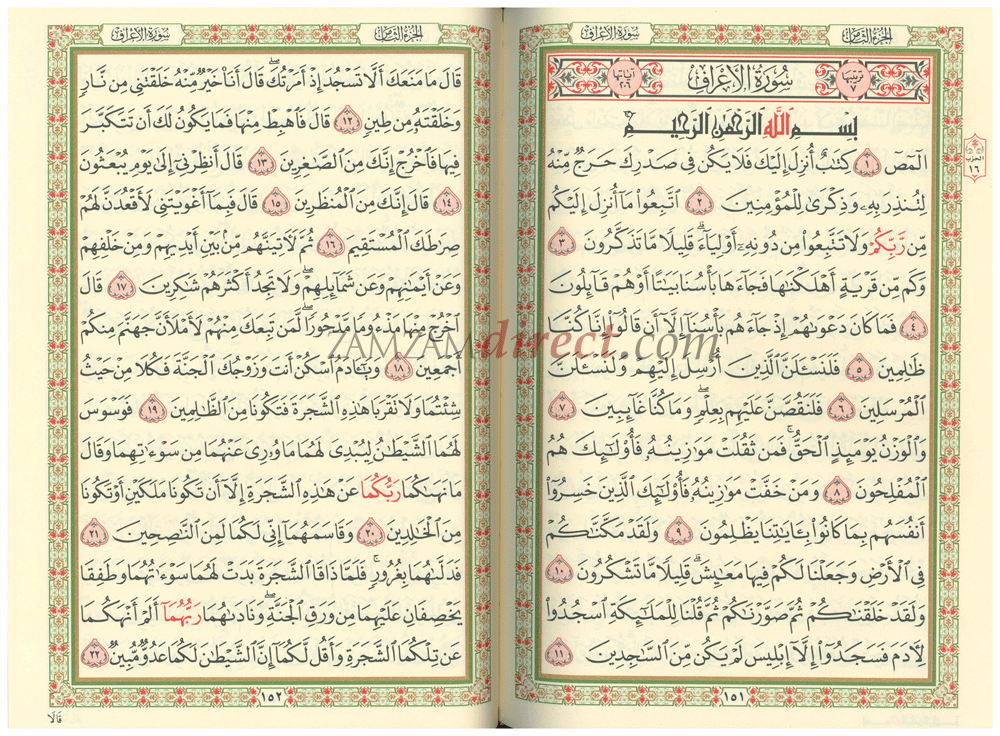 الجزء الثامن
سورة الأعراف
ترتيبها ٧
سُورَةُ الأَعْرَافِ
آياتها ٢٠٦
بِسْمِ اللَّهِ الرَّحْمَٰنِ الرَّحِيمِ
الحزب ١٦
الٓمٓصٓ ١ كِتَٰبٌ أُنزِلَ إِلَيْكَ فَلَا يَكُن فِى صَدْرِكَ حَرَجٌ مِّنْهُ
لِتُنذِرَ بِهِۦ وَذِكْرَىٰ لِلْمُؤْمِنِينَ ٢ ٱتَّبِعُوا۟ مَآ أُنزِلَ إِلَيْكُم
مِّن رَّبِّكُمْ وَلَا تَتَّبِعُوا۟ مِن دُونِهِۦٓ أَوْلِيَآءَ ۗ قَلِيلًا مَّا تَذَكَّرُونَ ٣
وَكَم مِّن قَرْيَةٍ أَهْلَكْنَٰهَا فَجَآءَهَا بَأْسُنَا بَيَٰتًا أَوْ هُمْ قَآئِلُونَ
٤ فَمَا كَانَ دَعْوَىٰهُمْ إِذْ جَآءَهُم بَأْسُنَآ إِلَّآ أَن قَالُوٓا۟ إِنَّا كُنَّا
ظَٰلِمِينَ ٥ فَلَنَسْـَٔلَنَّ ٱلَّذِينَ أُرْسِلَ إِلَيْهِمْ وَلَنَسْـَٔلَنَّ
ٱلْمُرْسَلِينَ ٦ فَلَنَقُصَّنَّ عَلَيْهِم بِعِلْمٍ ۖ وَمَا كُنَّا غَآئِبِينَ ٧
وَٱلْوَزْنُ يَوْمَئِذٍ ٱلْحَقُّ ۚ فَمَن ثَقُلَتْ مَوَٰزِينُهُۥ فَأُو۟لَٰٓئِكَ هُمُ
ٱلْمُفْلِحُونَ ٨ وَمَنْ خَفَّتْ مَوَٰزِينُهُۥ فَأُو۟لَٰٓئِكَ ٱلَّذِينَ خَسِرُوٓا۟
أَنفُسَهُم بِمَا كَانُوا۟ بِـَٔايَٰتِنَا يَظْلِمُونَ ٩ وَلَقَدْ مَكَّنَّٰكُمْ
فِى ٱلْأَرْضِ وَجَعَلْنَا لَكُمْ فِيهَا مَعَٰيِشَ ۗ قَلِيلًا مَّا تَشْكُرُونَ ١٠
وَلَقَدْ خَلَقْنَٰكُمْ ثُمَّ صَوَّرْنَٰكُمْ ثُمَّ قُلْنَا لِلْمَلَٰٓئِكَةِ ٱسْجُدُوا۟
لِـَٔادَمَ فَسَجَدُوٓا۟ إِلَّآ إِبْلِيسَ لَمْ يَكُن مِّنَ ٱلسَّٰجِدِينَ ١١
١٥١
الجزء الثامن
سورة الأعراف
قَالَ مَا مَنَعَكَ أَلَّا تَسْجُدَ إِذْ أَمَرْتُكَ ۖ قَالَ أَنَا۠ خَيْرٌ مِّنْهُ خَلَقْتَنِى مِن نَّارٍ
وَخَلَقْتَهُۥ مِن طِينٍ ١٢ قَالَ فَٱهْبِطْ مِنْهَا فَمَا يَكُونُ لَكَ أَن تَتَكَبَّرَ
فِيهَا فَٱخْرُجْ إِنَّكَ مِنَ ٱلصَّٰغِرِينَ ١٣ قَالَ أَنظِرْنِىٓ إِلَىٰ يَوْمِ يُبْعَثُونَ
١٤ قَالَ إِنَّكَ مِنَ ٱلْمُنظَرِينَ ١٥ قَالَ فَبِمَآ أَغْوَيْتَنِى لَأَقْعُدَنَّ لَهُمْ
صِرَٰطَكَ ٱلْمُسْتَقِيمَ ١٦ ثُمَّ لَـَٔاتِيَنَّهُم مِّنۢ بَيْنِ أَيْدِيهِمْ وَمِنْ خَلْفِهِمْ
وَعَنْ أَيْمَٰنِهِمْ وَعَن شَمَآئِلِهِمْ ۖ وَلَا تَجِدُ أَكْثَرَهُمْ شَٰكِرِينَ ١٧ قَالَ
ٱخْرُجْ مِنْهَا مَذْءُومًا مَّدْحُورًا ۖ لَّمَن تَبِعَكَ مِنْهُمْ لَأَمْلَأَنَّ جَهَنَّمَ مِنكُمْ
أَجْمَعِينَ ١٨ وَيَٰٓـَٔادَمُ ٱسْكُنْ أَنتَ وَزَوْجُكَ ٱلْجَنَّةَ فَكُلَا مِنْ حَيْثُ
شِئْتُمَا وَلَا تَقْرَبَا هَٰذِهِ ٱلشَّجَرَةَ فَتَكُونَا مِنَ ٱلظَّٰلِمِينَ ١٩ فَوَسْوَسَ
لَهُمَا ٱلشَّيْطَٰنُ لِيُبْدِىَ لَهُمَا مَا وُۥرِىَ عَنْهُمَا مِن سَوْءَٰتِهِمَا وَقَالَ
مَا نَهَىٰكُمَا رَبُّكُمَا عَنْ هَٰذِهِ ٱلشَّجَرَةِ إِلَّآ أَن تَكُونَا مَلَكَيْنِ أَوْ تَكُونَا
مِنَ ٱلْخَٰلِدِينَ ٢٠ وَقَاسَمَهُمَآ إِنِّى لَكُمَا لَمِنَ ٱلنَّٰصِحِينَ ٢١
فَدَلَّىٰهُمَا بِغُرُورٍ ۚ فَلَمَّا ذَاقَا ٱلشَّجَرَةَ بَدَتْ لَهُمَا سَوْءَٰتُهُمَا وَطَفِقَا
يَخْصِفَانِ عَلَيْهِمَا مِن وَرَقِ ٱلْجَنَّةِ ۖ وَنَادَىٰهُمَا رَبُّهُمَآ أَلَمْ أَنْهَكُمَا
عَن تِلْكُمَا ٱلشَّجَرَةِ وَأَقُل لَّكُمَآ إِنَّ ٱلشَّيْطَٰنَ لَكُمَا عَدُوٌّ مُّبِينٌ ٢٢
١٥٢
قَالَا
ZAMZAMdirect.com